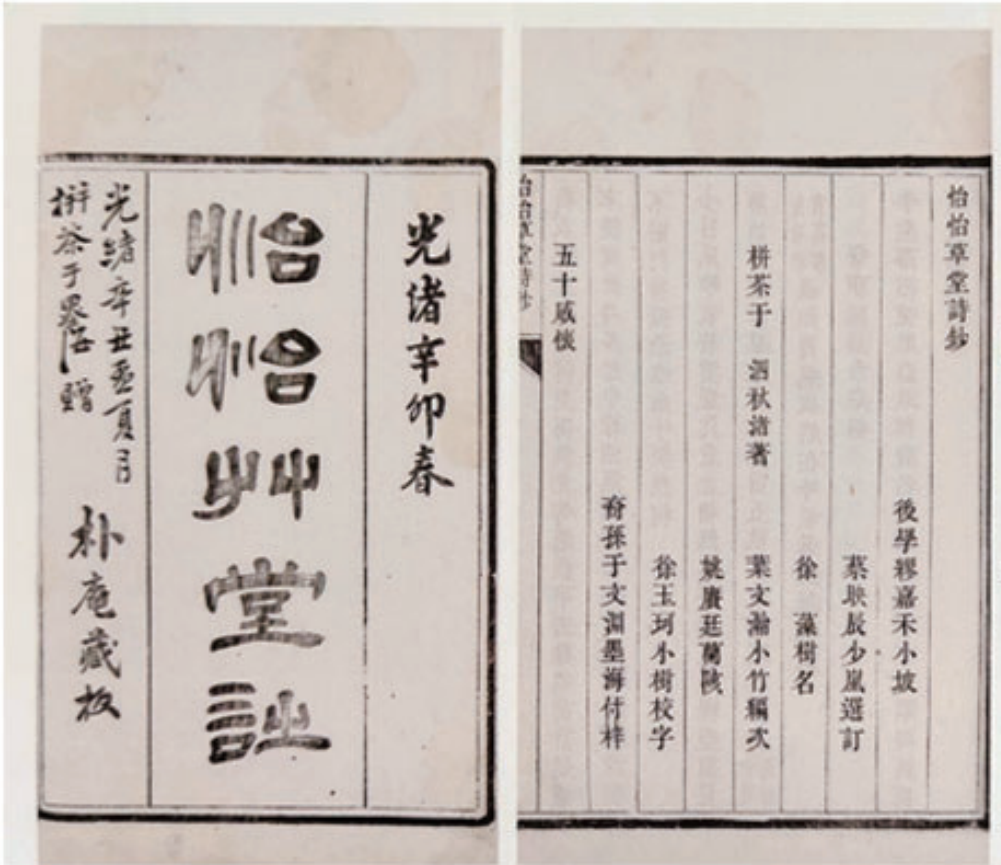 光緒辛卯春
怡怡艸堂詩
朴庵藏板
光緒辛丑孟夏月
栟茶于墨海贈
怡怡草堂詩鈔
後學繆嘉禾小坡
蔡映辰少嵐選訂
徐 藻樹名
栟茶于 泗秋渚著 葉文瀚小竹編次
姚賡廷蘭陔
徐玉珂小樹校字
裔孫于文淵墨海付梓
五十感懷
怡怡草堂詩鈔